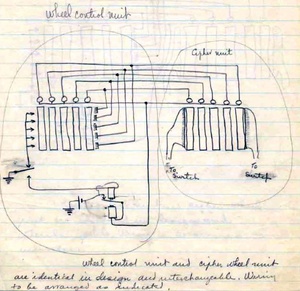 Wheel control unit
Cipher unit
To
Switch
To
Switch
Wheel control unit and cipher wheel unit
are identical in design and interchangeable. Wiring
to be arranged as indicated.